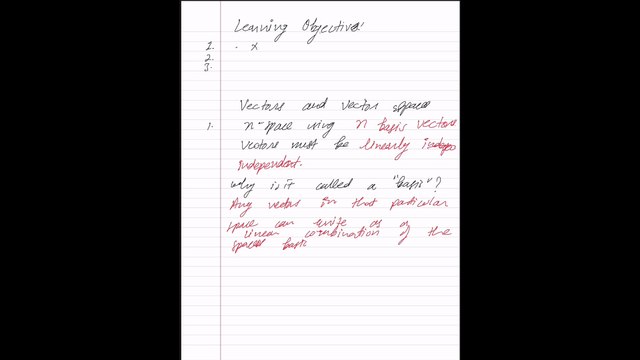 Learning Objectives
1. . x
2.
3.
Vectors and vector spaces
1. n-space using n basis vectors
Vectors must be linearly indep
independent.
Why is it called a "basis"?
Any vector in that particular
space can write as a
linear combination of the
spaces basis